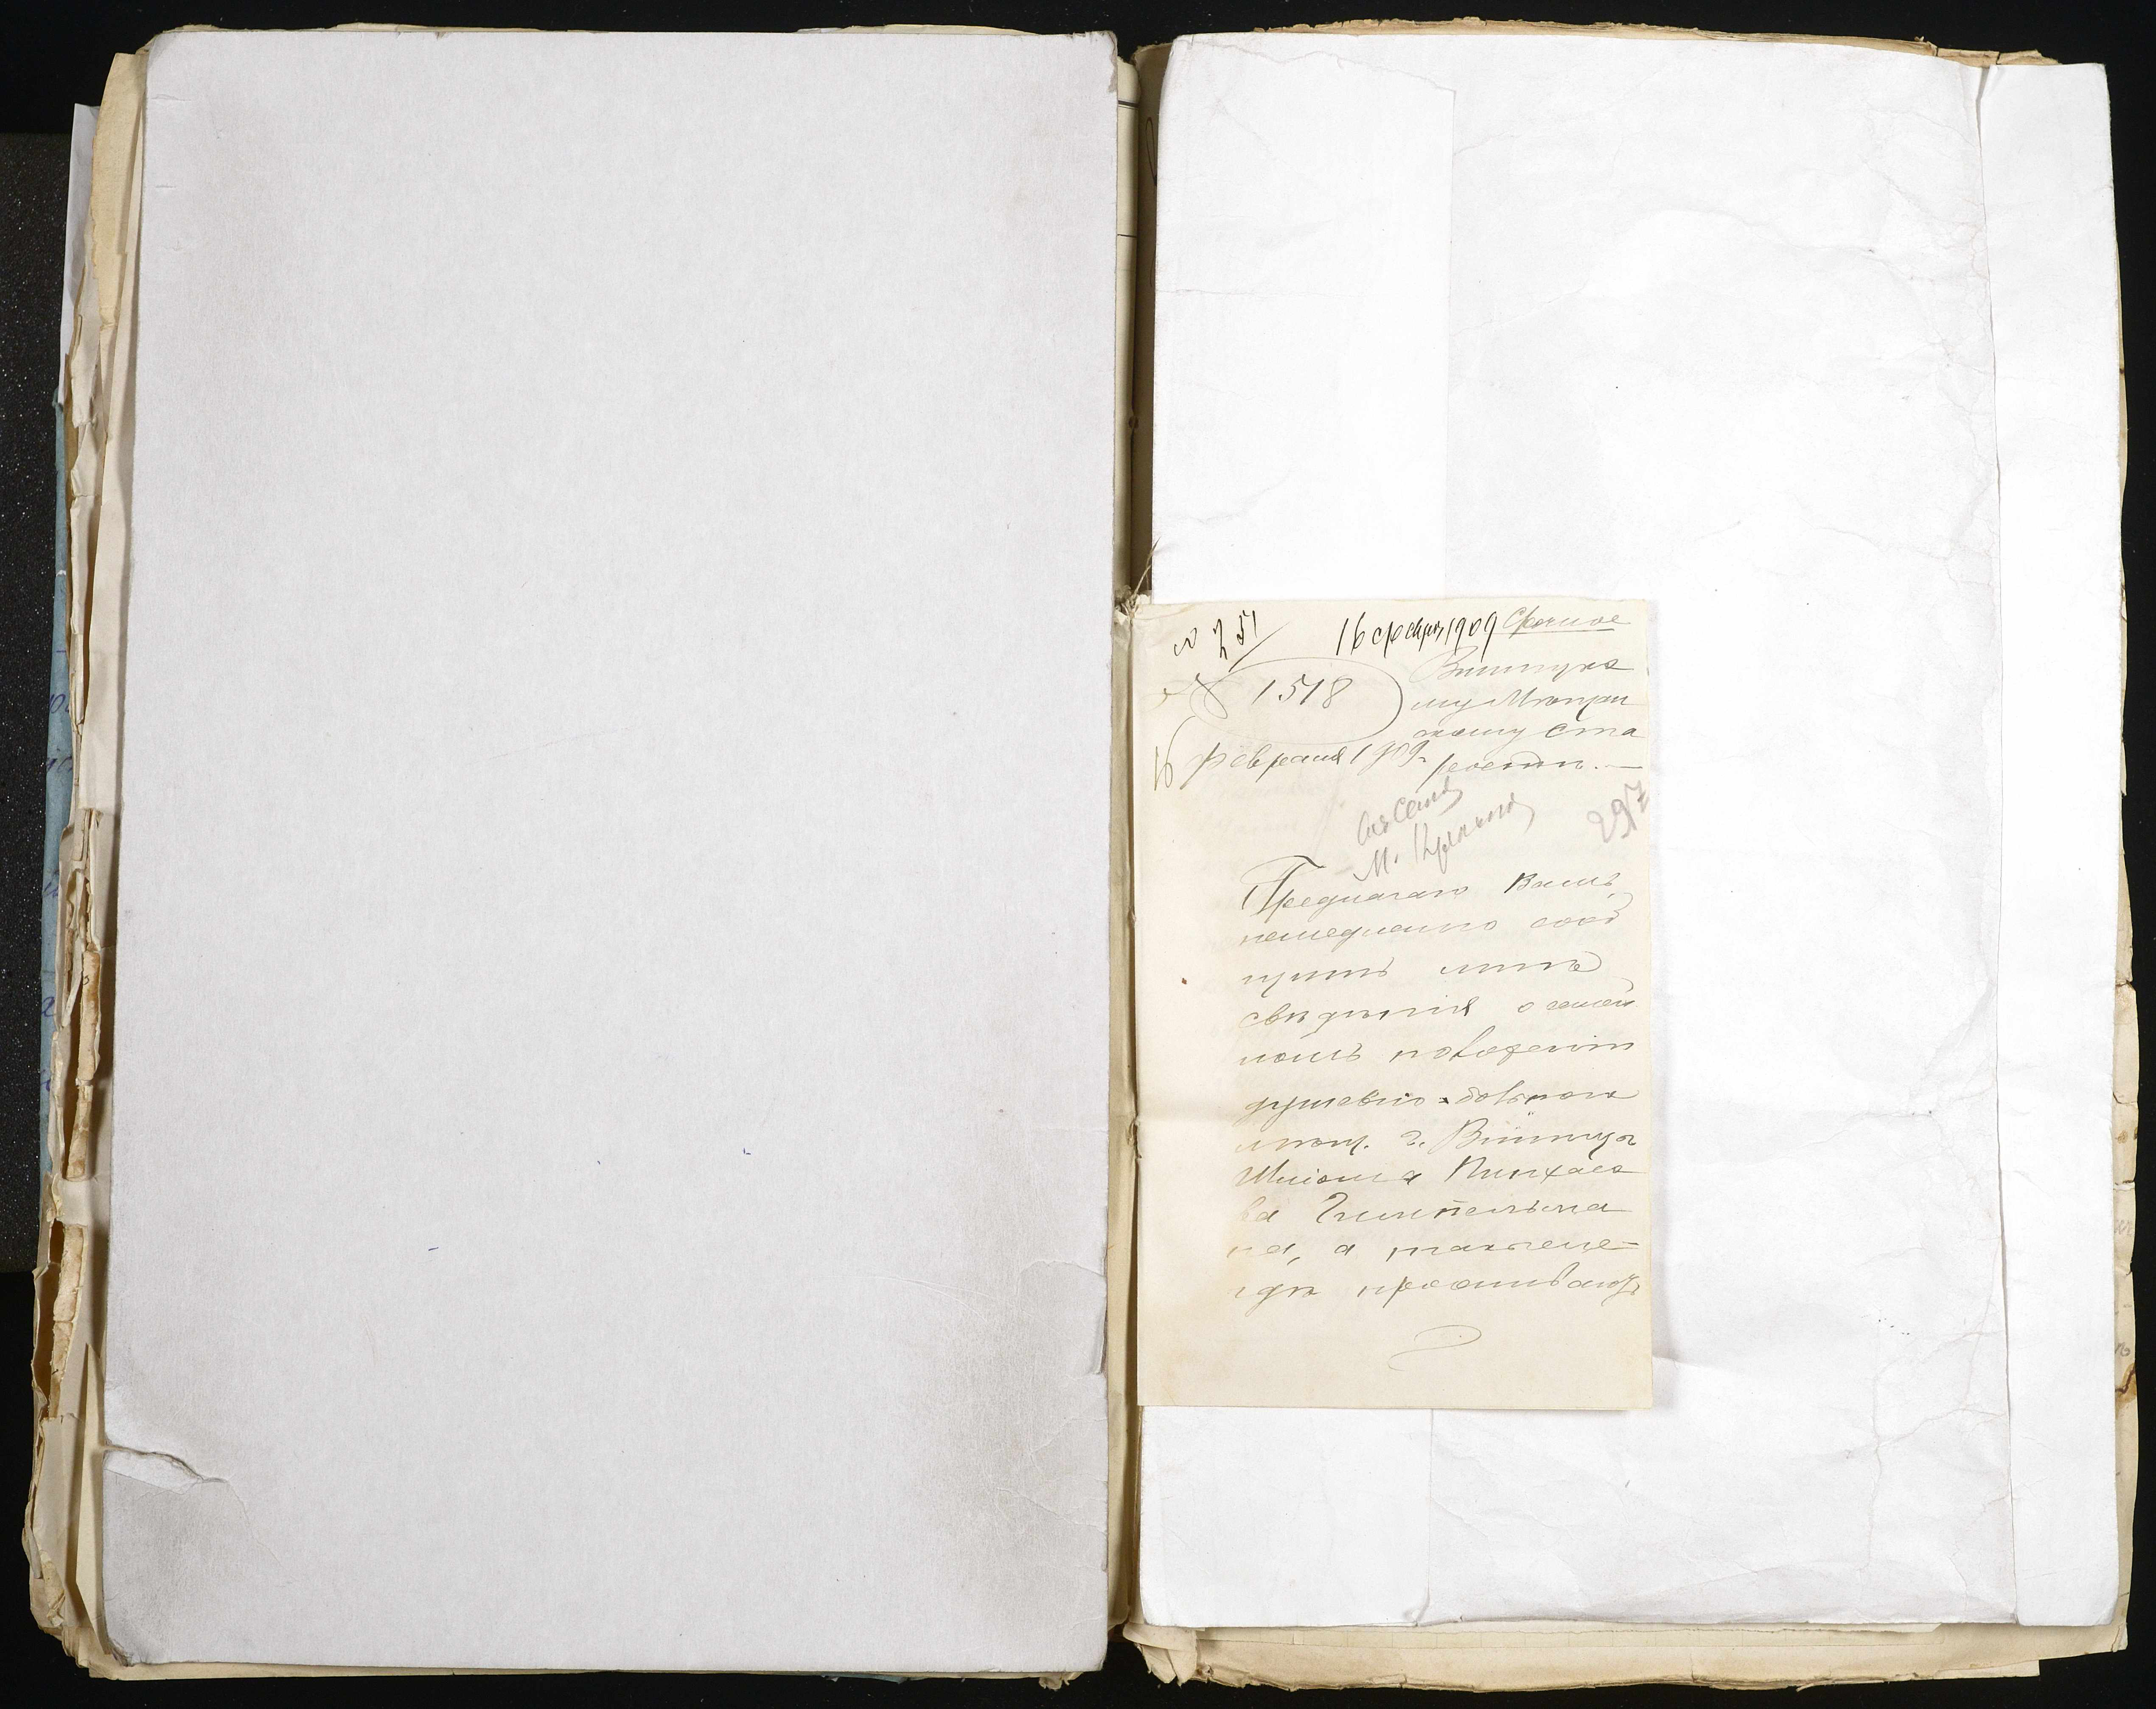 № 251 16 февр 1909 Срочное
№ 1518
Винницко
му Мѣщан
скому Ста
ростѣ. —
16 февраля 1909 г.
М.
297
Предлагаю Вамъ
немедленно сооб
щить мнѣ
свѣдѣнія о семей
номъ положеніи
душевно-больнаго
мѣщ. г. Винницы
Шлiома Пинхасо
ва Гимпельма
на, а также
гдѣ проживаютъ